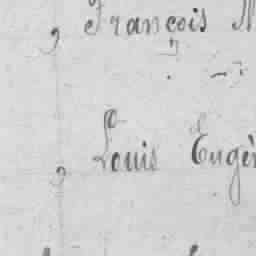 , François
, Louis Eugè